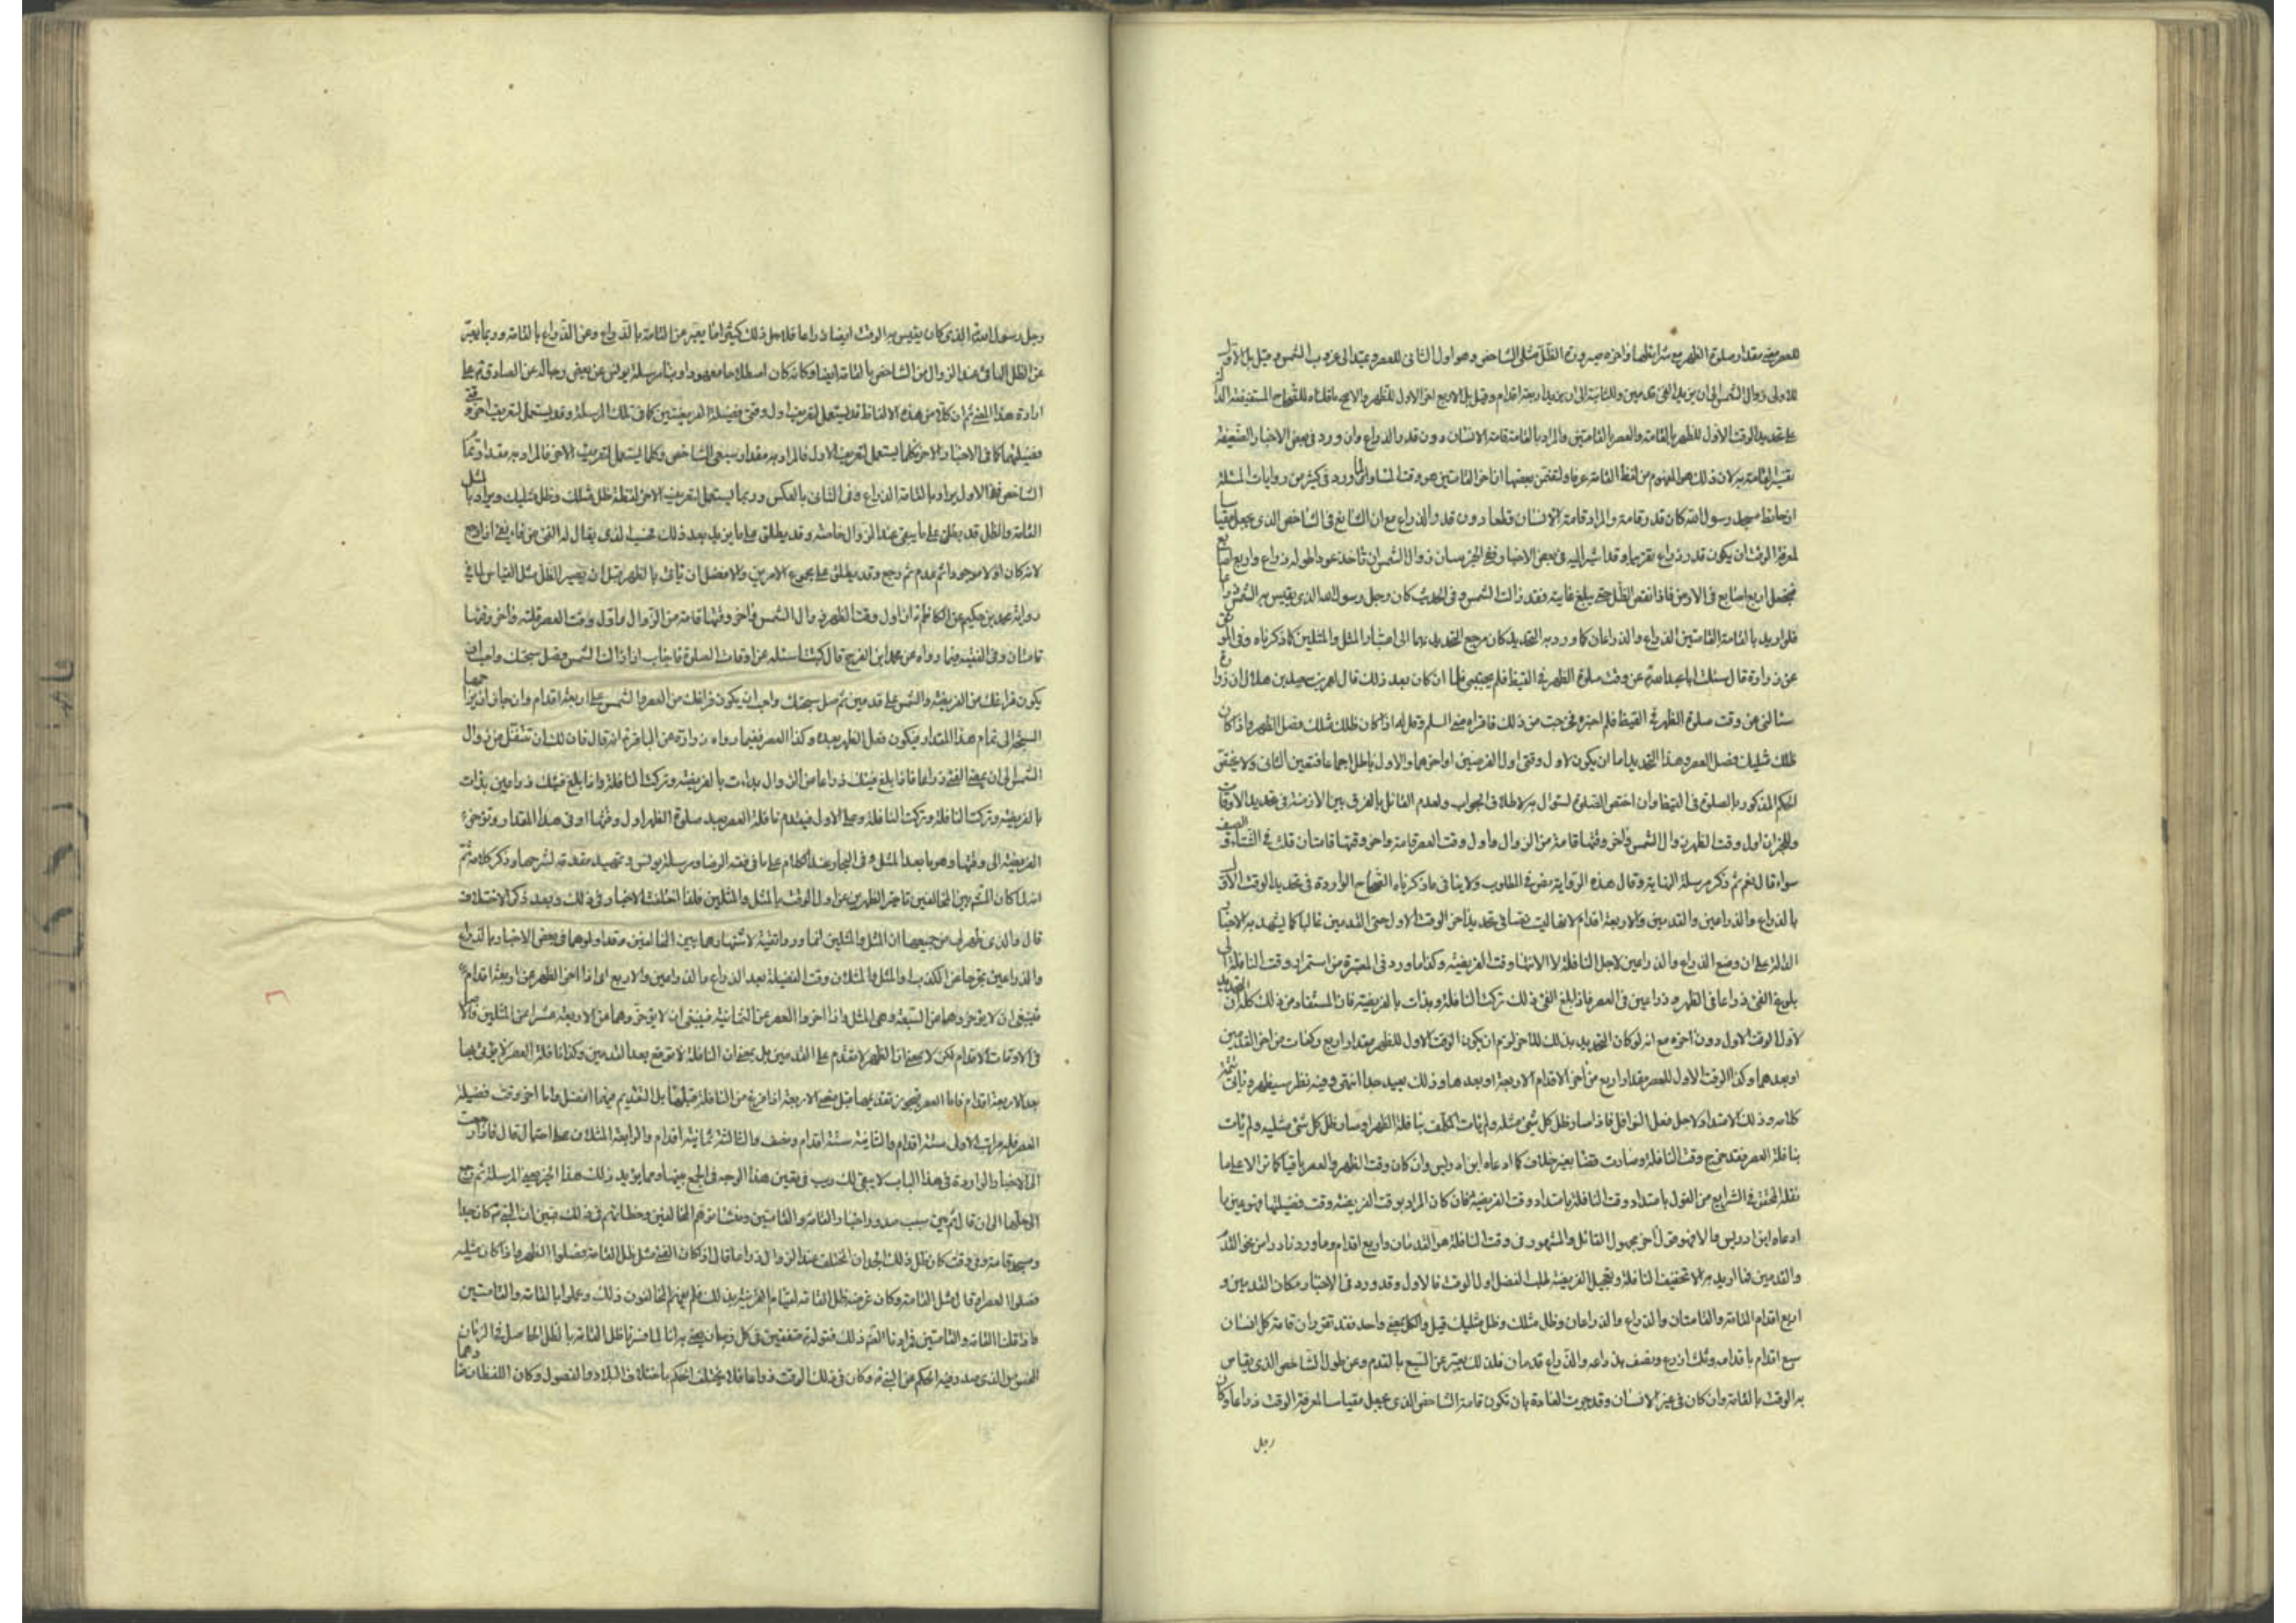 للعصر مضى مقدار صلوة الظهر مع شرايطها واخره صيرورة الظل مثلى الشاخص وهو اول الثانى للعصر ويمتد الى غروب الشمس وقيل بل الاول
للاولى زوال الشمس الى ان يزيد الفئ قدمين وللثانية الى ان يزيد اربعة اقدام وقيل بل الاربع اخر الاول للظهر والاصح ما قلناه للصحاح المستفيضة
على تحديد الوقت الاول للظهر بالقامة والعصر بالقامتين والمراد بالقامة قامة الانسان دون قدر الذراع وان ورد فى بعض الاخبار الضعيفة
القامة به لان ذلك هو المفهوم من لفظ القامة عرفا ولتضمن بعضها ان اخر القامتين هو وقت المساء ولما ورد فى كثير من روايات المثلة
ان حايط مسجد رسول الله كان قدر قامة والمراد قامة الانسان قطعا دون قدر الذراع مع ان الشايع فى الشاخص الذى يجعل مقياسا
لمعرفة الوقت ان يكون قدر ذراع تقريبا وقد اشير اليه فى بعض الاخبار ففى الخبر تبيان زوال الشمس ان تاخذ عودا طوله ذراع واربع اصابع
فتجعل اربع اصابع فى الارض فاذا نقص الظل حتى يبلغ غايته فقد زالت الشمس وفى الحديث كان رحل رسول الله الذى يقيس به الشمس
فلو اريد بالقامة والقامتين الذراع والذراعان كما ورد به التحديد كان مرجع التحديد بهما الى اعتبار المثل والمثلين كما ذكرناه وفى الموثق
عن زرارة قال سئلت ابا عبدالله عن وقت صلوة الظهر فى القيظ فلم يجبنى فلما ان كان بعد ذلك قال لعمر بن سعيد بن هلال ان زرارة
سالنى عن وقت صلوة الظهر فى القيظ فلم اخبره فخرجت من ذلك فاقراه منى السلم وقل له اذا كان ظلك مثلك فصل الظهر واذا كان
ظلك مثليك فصل العصر وهذا التحديد اما ان يكون لاول وقتى او لاخرهما والاول باطل اجماعا فتعين الثانى ولا يختص
الحكم المذكور بالصلوة فى القيظ وان اختص السؤال به لاطلاق الجواب ولعدم القائل بالفرق بين الازمنة فى تحديد الاوقات
وللخبر ان اول وقت الظهر زوال الشمس واخر وقتها قامة من الزوال واول وقت العصر قامة واخر وقتها قامتان قلت فى الشتاء والصيف
سواء قال نعم ثم ذكر مرسلة النهاية وقال هذه الرواية نص فى المطلوب ولا ينافى ما ذكرناه الصحاح الواردة فى تحديد الوقت الاول
بالذراع والذراعين والقدمين والاربعة اقدام لانها ليست نصا فى تحديد اخر الوقت الاول حتى القدمين غالبا كما يشهد به الاخبار
الدالة على ان وضع الذراع والذراعين لاجل النافلة لا لانتهاء وقت الفريضة وكذا ما ورد فى المعتبرة من استمرار وقت النافلة الى
بلوغ الفئ ذراعا فى الظهر وذراعين فى العصر فاذا بلغ الفئ ذلك تركت النافلة وبدات بالفريضة فان المستفاد من ذلك كله ان التحديد
لاول الوقت الاول دون اخره مع انه لو كان التحديد بذلك للاخر لزم ان يكون الوقت الاول للظهر مقدار اربع ركعات من اخر القدمين
او بعدهما وكذا الوقت الاول للعصر مقدار اربع من اخر الاقدام الاربعة او بعدها وذلك بعيد جدا انتهى وفيه نظر سيظهر وياتى تتمة
كلامه وذلك الامتداد لاجل فعل النوافل فاذا صار ظل كل شئ مثله ولم يات المكلف بنافلة الظهر او صار ظل كل شئ مثليه ولم يات
بنافلة العصر فقد خرج وقت النافلة وصارت قضاء بغير خلاف كما ادعاه ابن ادريس وان كان وقت الظهر والعصر باقيا كما تر الا على ما
نقله المحقق فى الشرايع من القول بامتداد وقت النافلة بامتداد وقت الفريضة فان كان المراد بوقت الفريضة وقت فضيلتها فهو عين ما
ادعاه ابن ادريس والا فهو قول اخر مجهول القائل والمشهور فى وقت النافلة هو القدمان واربع اقدام وما ورد نادرا من نحو القدم
والقدمين فما اريد به الا تخفيف النافلة وتعجيل الفريضة طلبا لفضل اول الوقت فالاول وقد ورد فى الاخبار مكان القدمين و
اربع اقدام القامة والقامتان والذراع والذراعان وظل مثلك وظل مثليك قيل والكل بمعنى واحد فقد تقرر ان قامة كل انسان
سبع اقدام باقدامه وثلث اذرع ونصف بذراعه والذراع قدمان فلذلك يعبر عن السبع بالقدم وعن طول الشاخص الذى يقاس
به الوقت بالقامة وان كان فى غير الانسان وقد جرت العادة بان تكون قامة الشاخص الذى يجعل مقياسا لمعرفة الوقت ذراعا وكان
رحل
رحل رسول الله الذى كان يقيس به الوقت ايضا ذراعا فلاجل ذلك كثيرا ما يعبر عن القامة بالذراع وعن الذراع بالقامة وربما يعبر
عن الظل الباقى عند الزوال من الشاخص بالقامة ايضا وكانه كان اصطلاحا معهودا وبناء مرسلة يونس عن بعض رجاله عن الصادق على
ارادة هذا المعنى ثم ان كلا من هذه الالفاظ قد يستعمل لتعريف اول وقتى فضيلة الفريضتين كما فى تلك المرسلة وقد يستعمل لتعريف اخر وقتى
فضيلتهما كما فى الاخبار الاخر فكلما يستعمل لتعريف الاول فالمراد به مقدار سبعى الشاخص وكلما يستعمل لتعريف الاخر فالمراد به مقدار تمام
الشاخص ففى الاول يراد بالقامة الذراع وفى الثانى بالعكس وربما يستعمل لتعريف الاخر لفظة ظل مثلك وظل مثليك ويراد بالمثل
القامة والظل قد يطلق على ما يبقى عند الزوال خاصة وقد يطلق على ما يزيد بعد ذلك فحسب الذى يقال له الفئ من فاء يفئ اذا رجع
لانه كان اولا موجودا ثم عدم ثم رجع وقد يطلق على مجموع الامرين والافضل ان تاتى بالظهر قبل ان يصير الظل مثل القياس لما فى
رواية محمد بن حكيم عن الكاظم ان اول وقت الظهر زوال الشمس واخر وقتها قامة من الزوال واول وقت العصر قامة واخر وقتها
قامتان وفى الفقيه فيما رواه عن محمد ابن الفرج قال كتبت اسئله عن اوقات الصلوة فاجاب اذا زالت الشمس فصل سبحتك واحب ان
يكون فراغك من الفريضة والشمس على قدمين ثم صل سبحتك واحب ان يكون فراغك من العصر والشمس على اربعة اقدام
السبحة الى تمام هذا المقدار فيكون فعل الظهر بعده وكذا العصر ففيما رواه زرارة عن الباقر انه قال فان لك ان تتنفل من زوال
الشمس الى ان يمضى الفئ ذراعا فاذا بلغ فيئك ذراعا من الزوال بدات بالفريضة وتركت النافلة واذا بلغ فيئك ذراعين بدات
بالفريضة وتركت النافلة وتركت النافلة وعلى الاول فيقدم نافلة العصر بعد صلوة الظهر اول وقتها او فى هذا المقدار وتؤخر
الفريضة الى وقتها وهو ما بعد المثل وفى البحار عند الكلام على ما فى فقه الرضا ومرسلة يونس وتمهيد مقدمة لشرحها وذكر كلامه ثم
انه لما كان المشهور بين المخالفين تاخير الظهرين عن اول الوقت بالمثل والمثلين فلذا اختلفت الاخبار فى ذلك وبعد ذكر الاختلاف
قال والذى ظهر لى من جميعها ان المثل والمثلين انما وردا تقية لاشتهارهما بين المخالفين وقد اولوهما فى بعض الاخبار بالذراع
والذراعين تحرجا عن الكذب او المثل والمثلان وقت الفضيلة بعد الذراع والذراعين والاربع اى اذا اخر الظهر عن اربعة اقدام
فينبغى ان لا يؤخرها عن السبعة وهى المثل واذا اخروا العصر عن الثمانية فينبغى ان لا يؤخروها عن الاربعة عشر اعن المثلين فالاصل
فى الاوقات الاقدام لكن لا بمعنى ان الظهر لا يقدم على القدمين بل بمعنى ان النافلة لا توقع بعد القدمين وكذا نافلة العصر لا يؤتى بها
بعد الاربعة اقدام فاما العصر فيجوز تقديمها قبل مضى الاربعة اذا فرغ من النافلة قبلها بل التقديم فيهما افضل واما اخر وقت فضيلة
العصر فله مراتب الاولى ستة اقدام والثانية ستة اقدام ونصف والثالثة ثمانية اقدام والرابعة المثلان على احتمال قال فاذا رجعت
الى الاخبار الواردة فى هذا الباب لا يبقى لك ريب فى تعين هذا الوجه فى الجمع بينها ومما يؤيد ذلك هذا الخبر يعنى المرسلة ثم رجع
الى حلها الى ان قال ثم بين سبب صدور اخبار القامة والقامتين ومنشا توهم المخالفين وخطائهم فى ذلك فبين ان النبى كان جدار
مسجده قامة وفى وقت كان ظل ذلك الجدار المختلف عند الزوال ذراعا قال اذا كان الفئ مثل ظل القامة فصلوا الظهر واذا كان مثليه
فصلوا العصر او قال مثل القامة وكان غرضه ظل القامة لقيام القرينة بذلك فلم يفهم المخالفون ذلك وعملوا بالقامة والقامتين
واذا قلنا القامة والقامتين فمرادنا القدر ذلك فقوله متفقين فى كل زمان يعنى به انا لما فسرنا ظل القامة بالظل الحاصل فى الزمان
المخصوص الذى صدر فيه الحكم من النبى وكان فى ذلك الوقت ذراعا فلا يختلف الحكم باختلاف البلاد والفصول وكان اللفظان